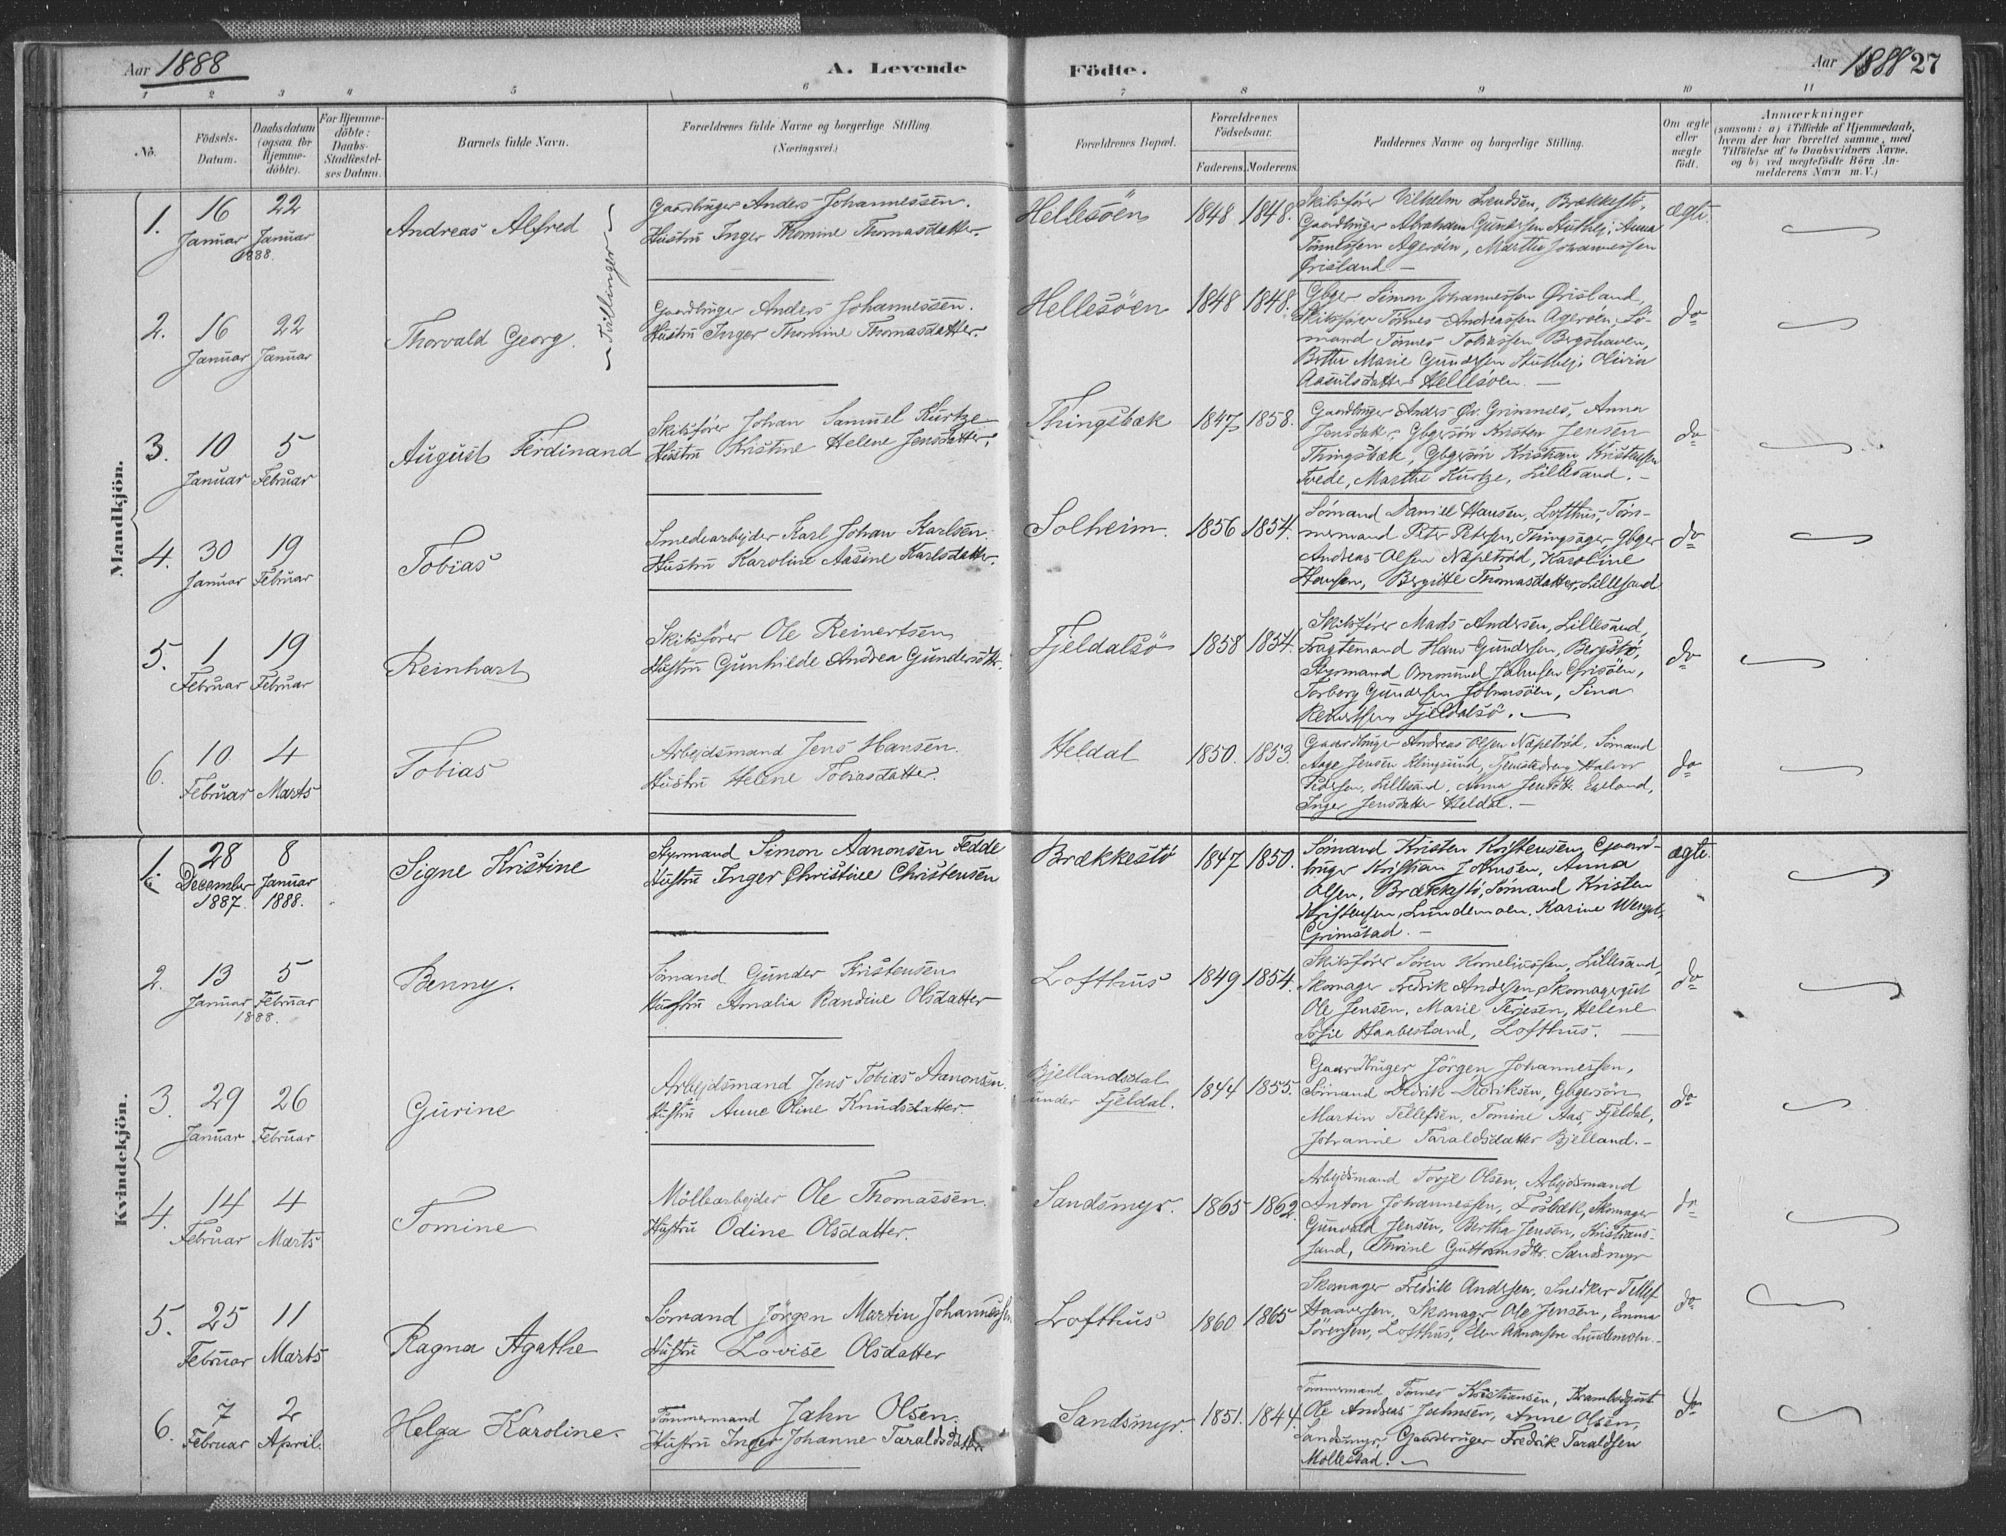 Aar 1888
A. Levende
Födte.
Aar 1888 27
1 2 3 4 5 6 7 8 9 10 11
No.
Födsels-
Datum.
Daabsdatum
(ogsaa for
Hjemme-
döbte).
For Hjemme-
döbte:
Daabs-
Stadfæstel-
ses Datum.
Barnets fulde Navn.
Forældrenes fulde Navne og borgerlige Stilling
(Næringsvei.)
Forældrenes Bopæl.
Forældrenes
Födselsaar.
Faderens. Moderens.
Faddernes Navne og borgerlige Stilling.
Om ægte
eller
uægte
födt.
Anmærkninger
(saasom: a) i Tilfælde af Hjemmedaab,
hvem der har forrettet samme, med
Tilföielse af to Daabsvidners Navne.
og b) ved uægtefödte Börn An-
melderens Navn m. V.)
Mandkjön.
1.
16
Januar
22
Januar
1888.
Andreas Alfred
Tvillinger
Gaardbruger Anders Johannessen.
Hustru Inger Thomine Thomasdatter
Hellesöen
1848 1848.
Skibsfører Vilhelm Svendsen, Brækkestø,
Gaardbruger Abraham Gundersen Anna
Tönnessen Agerøen, Marthe Johannessen
Grisland
ægte.
2.
16
Januar
22
Januar
Thorvald Georg.
Gaardbruger Anders Johannessen.
Hustru Inger Thomine Thomasdatter.
Hellesöen
1848 1848.
Gbger Simon Johannessen Grisland,
Skibsfører Tönnes Andreassen Agerøen, Sø-
mand Tönnes Tobiassen Bergshaven,
Marie Gundersen Olivia
Aasulsdatter Hellesöen.
do
3.
10
Januar
5
Februar
August Ferdinand
Skibsfører Johan Samuel Kurtze
Hustru Kristine Helene Jensdatter.
Thingsbæk
1847 1858.
Gaardbruger Anders Grimnes, Anna
Jensdatr, Gbgersøn Kristen Jensen
Thingsbæk, Gbgersön Kristian Kristensen
Tvede, Marthe Kurtze, Lillesand.
do
4.
30
Januar
19
Februar
Tobias
Smedearbejder Karl Johan Karlsen.
Hustru Karoline Aasine Karlsdatter.
Solheim.
1856 1854.
Sømand Daniel Hansen, Lofthus, Tøm-
mermand Peter Petersen, Thingsager, Gbger
Andreas Olsen Næpetråd, Karoline
Hansen, Bergitte Thomasdatter, Lillesand
do
5.
1
Februar
19
Februar
Reinhart
Skibsfører Ole Reinertsen
Hustru Gunhilde Andrea Gundersdtr.
Fjeldalsö
1858 1854.
Skibsfører Mads Andersen, Lillesand,
Fragtemand Hans Gundersen, Bergstø,
Styrmand Omund Jahnsen Grisöen,
Torborg Gundersen Johnsöen, Sina
Reinertsen Fjeldalsö.
do
6.
10
Februar
4
Marts
Tobias
Arbejdsmand Jens Hansen.
Hustru Helene Tobiasdatter.
Heldal
1850. 1853.
Gaardbruger Andreas Olsen Næpetråd, Sømand
Aage Jensen Klingsund, Tjenestedreng Halvor
Pedersen, Lillesand, Anna Jensdtr. Egeland,
Inger Jensdatter Heldal.
do
Kvindekjön.
1.
28
December
1887.
8
Januar
1888.
Signe Kristine
Styrmand Simon Aanonsen Fedde
Hustru Inger Christine Christensen
Brækkestö
1847 1850.
Sømand Kristen Kristensen, Gaard-
bruger Kristian Johnsen, Anna
Olsen, Brækkestö, Sømand Kristen
Kristensen, Lundemoen, Karine
Grimstad.
ægte.
2.
13
Januar
5
Februar
1888.
Benny.
Sømand Gunder Kristensen
Hustru Amalia Randine Olsdatter
Lofthus
1849 1854.
Skibsfører Sören Korneliussen, Lillesand,
Skomager Fredrik Andersen, Skomagergut
Ole Jensen, Marie Terjesen, Helene
Sofie Haabestand, Lofthus.
do
3.
29
Januar
26
Februar
Gurine
Arbejdsmand Jens Tobias Aanonsen.
Hustru Anne Oline Knudsdatter.
Bjellandsdal
under Fjeldal.
1844 1855.
Gaardbruger Jörgen Johannessen,
Sömand Didrik Didriksen, Gbgersön
Martin Tellefsen, Tomine Aas, Fjeldal,
Johanne Taraldsdatter Bjelland.
do
4.
14
Februar
4
Marts
Tomine
Møllearbejder Ole Thomassen.
Hustru Odine Olsdatter.
Sandsmyr.
1865 1862.
Arbejdsmand Torje Olsen, Arbejdsmand
Anton Johannessen, Fosbæk, Skomager
Gunvald Jensen, Bertha Jensen, Kristians-
sand, Thrine Guttormsdtr. Sandsmyr
do
5.
25
Februar
11
Marts
Ragna Agathe
Sømand Jörgen Martin Johannessen
Hustru Lovise Olsdatter
Lofthus
1860. 1865
Skomager Fredrik Andersen, Snedker Tellef
Haaversen, Skomager Ole Jensen, Emma
Sörensen, Lofthus, Aanonsen Lundemoen
do
6.
7
Februar
2
April.
Helga Karoline.
Tømmermand Jahn Olsen.
Hustru Inger Johanne Taraldsdatter
Sandsmyr.
1851. 1844
Tømmermand Tönnes Kristiansen, Krambodgut
Ole Andreas Jahnsen, Anne Olsen,
Sandsmyr, Gaardbruger Fredrik Taraldsen
Møllestad.
do